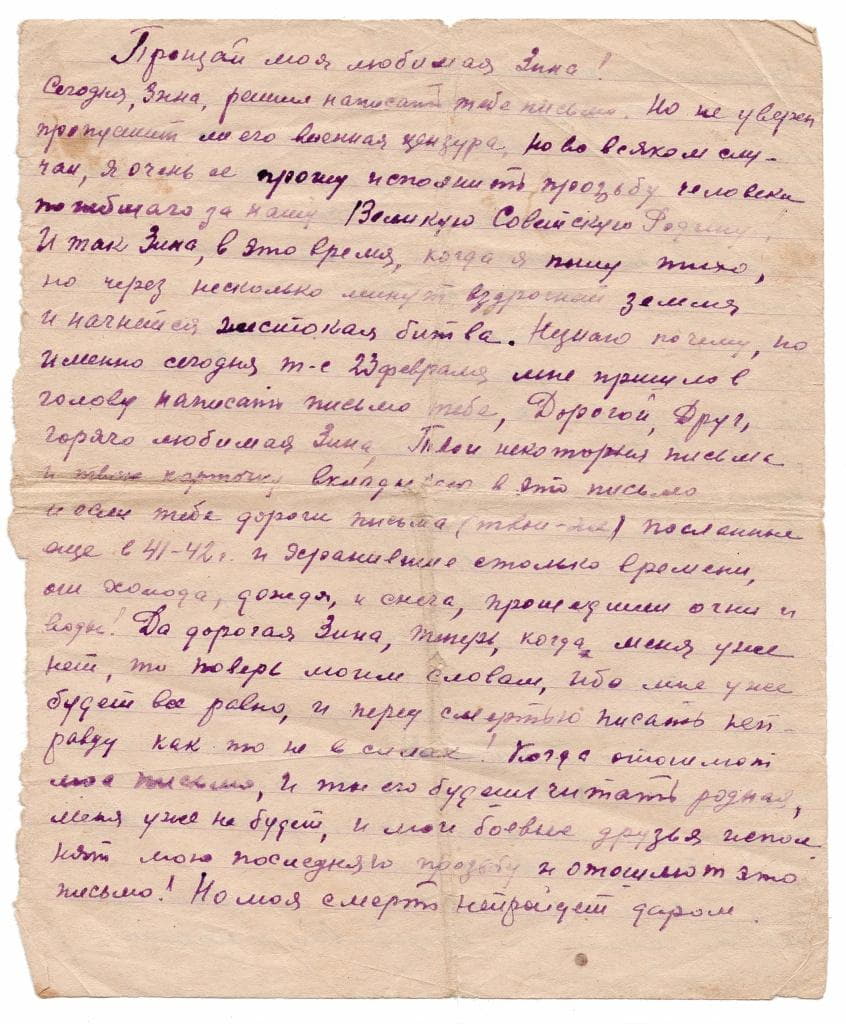 Прощай моя любимая Зина!
Сегодня, Зина, решил написать тебе письмо. Но не уверен
пропустит ли его военная цензура, но во всяком слу-
чаи, я очень ее прошу исполнить прозьбу человека
погибшаго за нашу Великую Советскую Родину!
И так Зина, в это время, когда я пишу тихо,
но через несколько минут вздрогнит земля
и начнется жестокая битва. Незнаю почему, но
именно сегодня т-е 23 февраля мне пришло в
голову написать письмо тебе, Дорогой, Друг,
горячо любимая Зина, Твои некоторыя письма
и твою карточку вкладываю в это письмо
и если тебе дороги письма (твои-же) посланные
еще в 41-42 г. и хранившие столько времени,
от холода, дождя, и снега, прошедшии огни и
воды! Да дорогая Зина, теперь, когда, меня уже
нет, то поверь моим словам, ибо мне уже
будет все равно, и перед смертью писать неп-
равду как то не в силах! Когда отошлют
мое письмо, и ты его будеш читать родная,
меня уже не будет, и мои боевые друзья испол
нят мою последняго прозьбу и отошлют это
письмо! Но моя смерть непройдет даром.